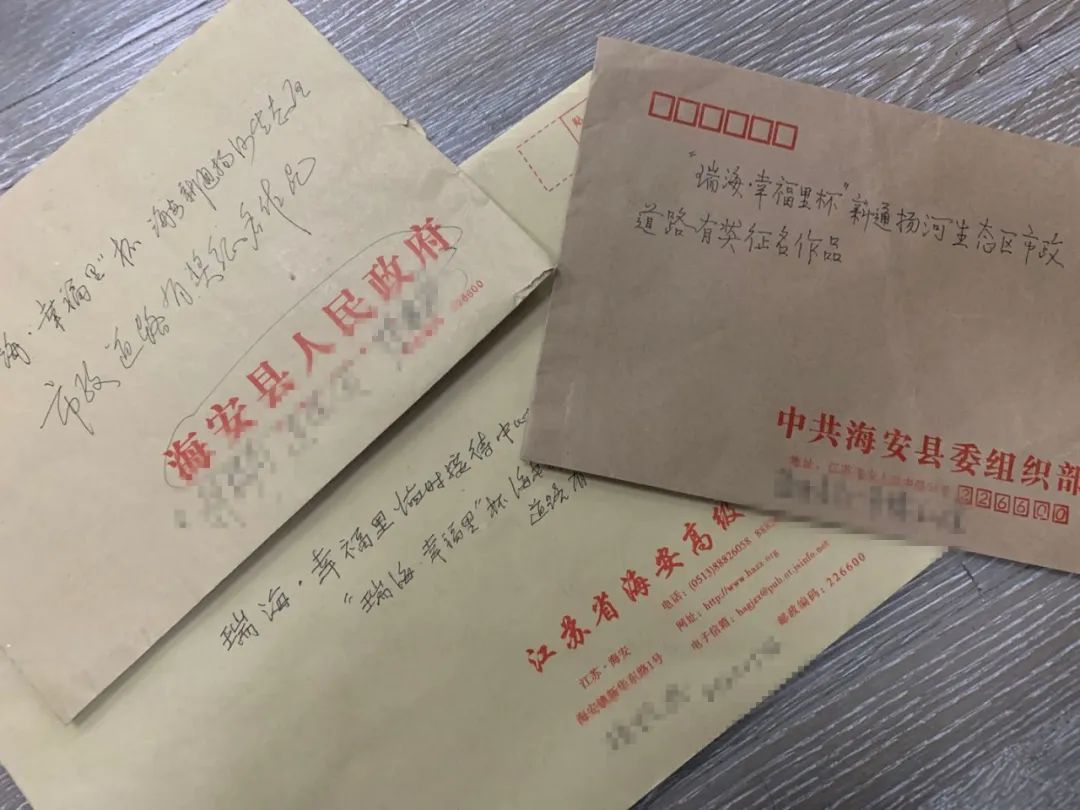 海·幸福里"杯 海安新通扬河生态区
市政道路有奖征名作品
海安县人民政府
226600
"瑞海·幸福里杯"新通扬河生态区市政
道路有奖征名作品
中共海安县委组织部
226600
瑞海·幸福里临时接待中心
"瑞海·幸福里"杯 海安
道路有
江苏省海安高级
江苏·海安
海安镇新华东路1号
电话:(0513)88826058
网址:http://www.hazx.org
电子信箱:hagjzx@pub.nt.jsinfo.net
邮政编码:226600